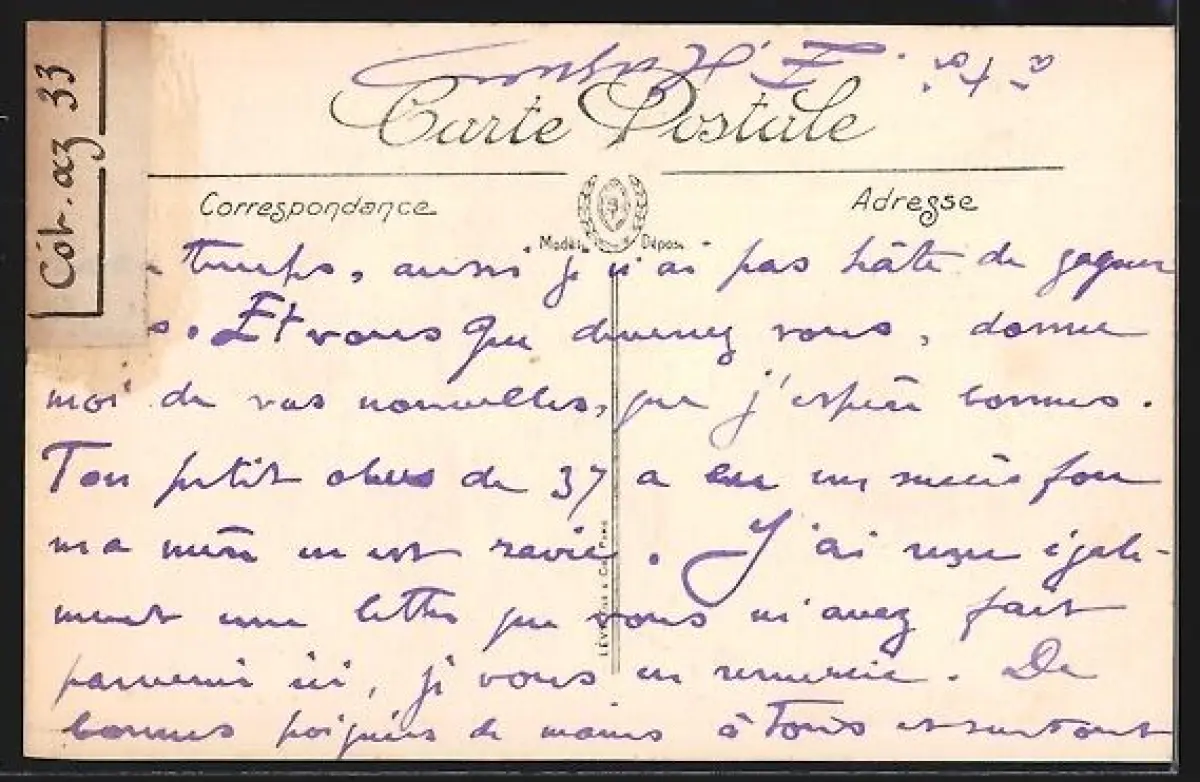 à toi. E.
Carte Postale
Correspondance
Adresse
Modèle Déposé
Cót. az 33
temps, aussi je n'ai pas hâte de gagner
s. Et vous que devenez vous, donne
moi de vos nouvelles, que j'espère bonnes.
Ton petit obus de 37 a eu un succès fou
ma mère en est ravie. J'ai reçu égale-
ment une lettre que vous m'avez fait
parvenir ici, je vous en remercie. De
bonnes poignées de mains à Tous et surtout